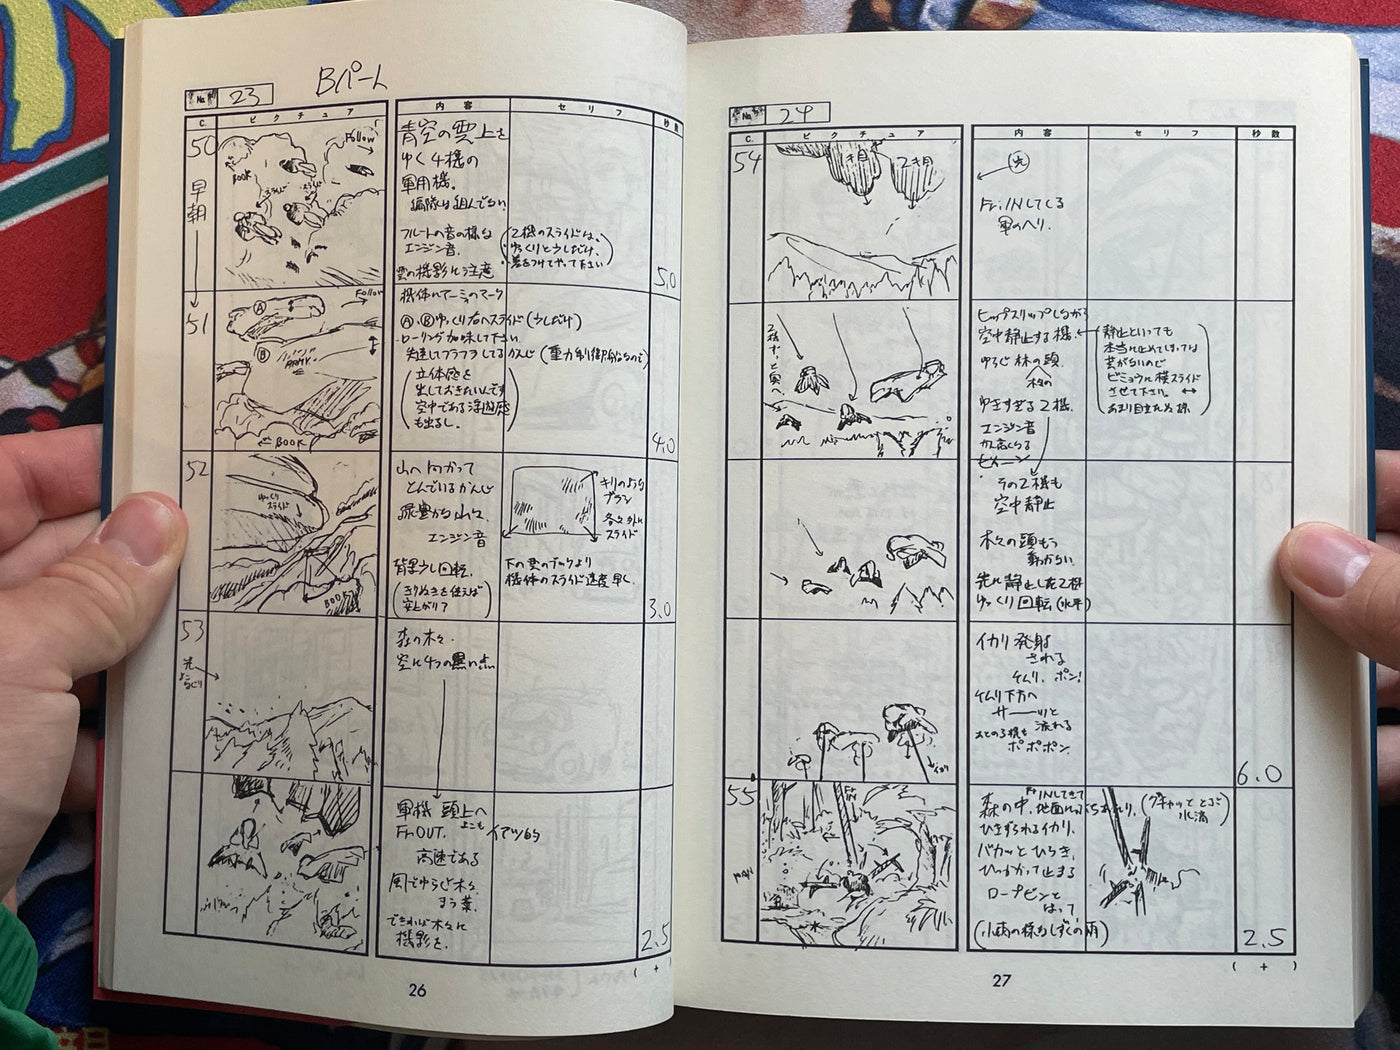 Bパート
No. 23
C. ピクチュア 内容 セリフ 秒数
50
早朝
BOOK
Follow
青空の雲上を
ゆく4機の
軍用機.
編隊は組んでない
フルートの音の様な
エンジン音.
雲の機影に注意
(2機のスライドは、
ゆっくりと少しだけ、
差をつけてやって下さい)
5.0
51
Ⓐ
Ⓑ
Follow
ARMY
BOOK
機体にアーミーのマーク
Ⓐ、Ⓑゆっくり右へスライド(少しだけ)
ローリング加味して下さい
失速してフラフラしてるかんじ(重力制御船なので)
(立体感を
出しておきたいんです
空中である浮遊感
も出るし.)
4.0
52
ゆっくり
スライド
BOOK
山へ向かって
とんでいるかんじ
エンジン音
背景少し回転.
安上がり?
キリのような
ブラシ
各々外に
スライド
下の雲のブックより
機体のスライド速度早く.
3.0
53
森の木々.
空に4つの黒い点
軍機 頭上へ
Fr.OUT.
高速である
風でゆらぐ木々
まう葉.
できれば木々に
機影を.
2.5
26
No. 24
C. ピクチュア 内容 セリフ 秒数
54
2キ目
Fr.INしてくる
軍のヘリ.
ヒップスリップしながら
空中静止する機.
ゆらぐ林の頭.
木々の
ゆきすぎる2機.
エンジン音
が高くなる
(静止といっても
本当に止めてしまっては
芸がないので
ビミョウに横スライド
させて下さい. ↔
あまり目立たぬ様.)
2機ずっと奥へ
その2機も
空中静止
木々の頭もう
動かない.
先に静止した2機
ゆっくり回転(水平)
イカリ発射
される
ケムリ、ポン!
ケムリ下方へ
サーーッと
流れる
あとの3機も
ポポポン
イカリ
6.0
55
Fr.INしてきて
ひきずられるイカリ.
バカッとひらき.
ひっかかって止まる
ロープピンと
はって
(小雨の様なしずくの雨)
2.5
( + )
27